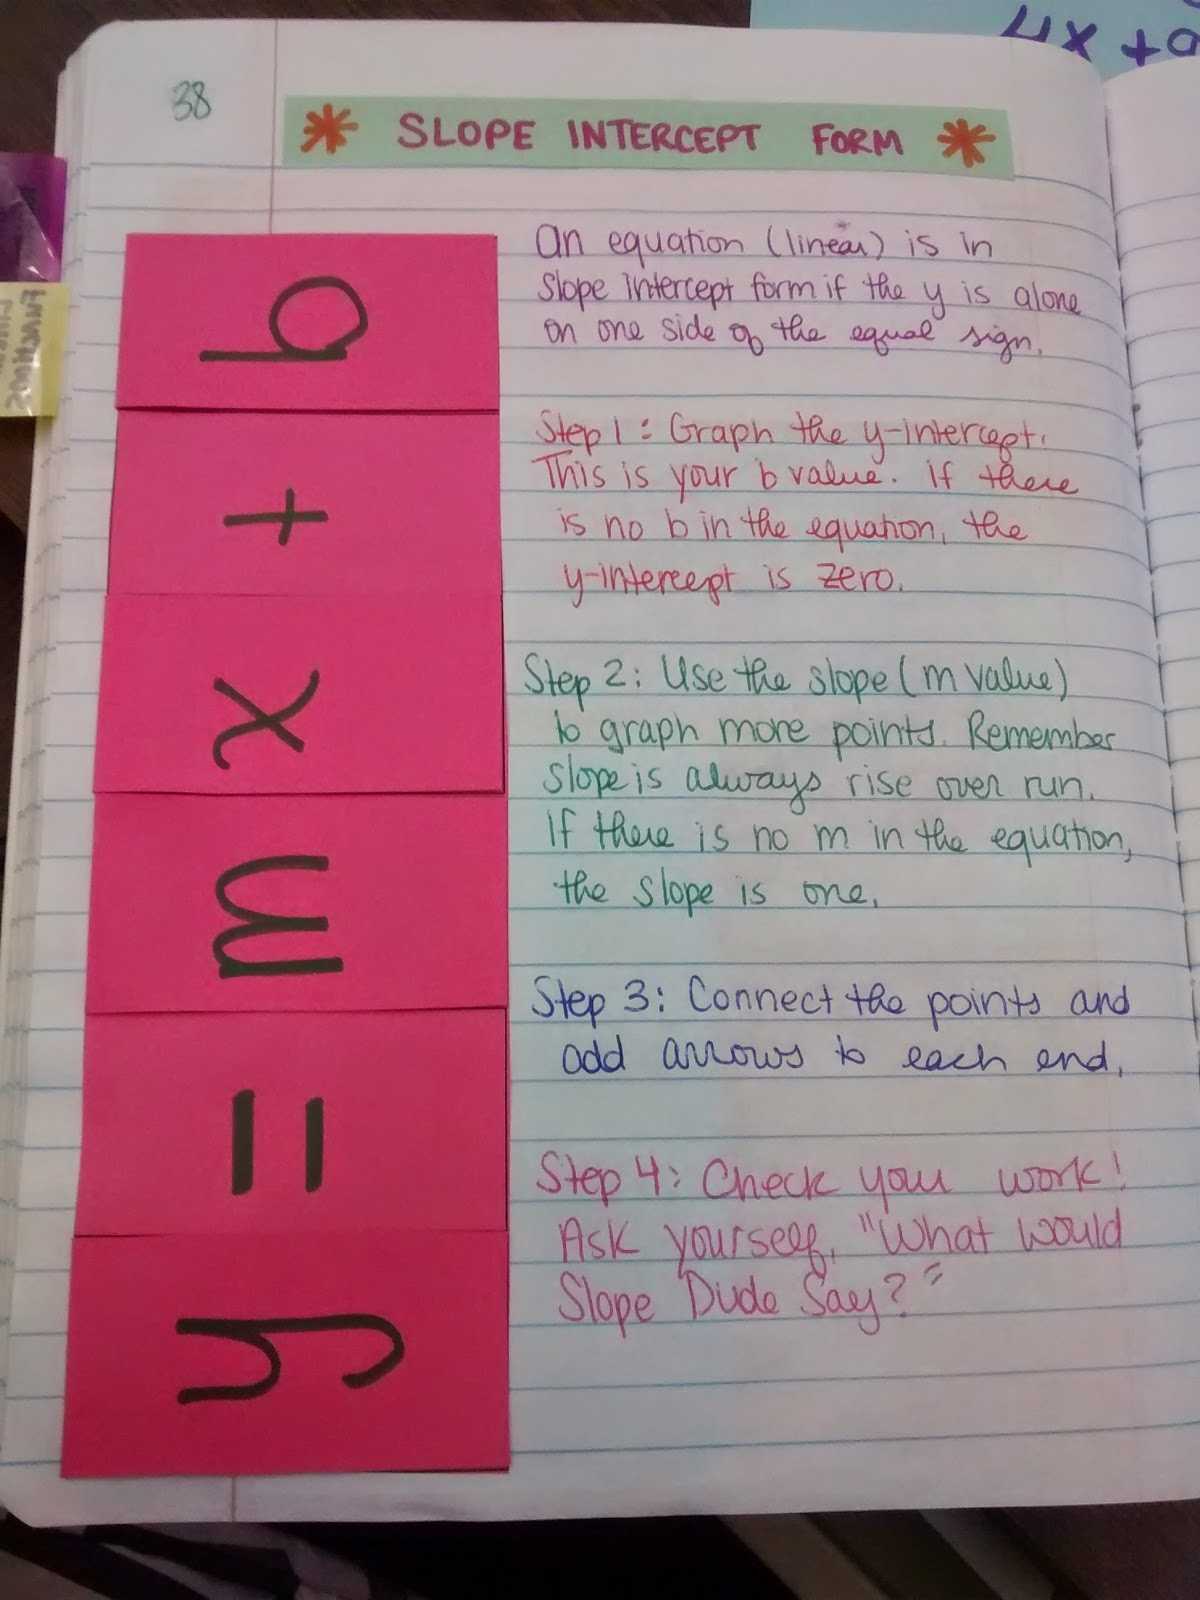 38
SLOPE INTERCEPT FORM
y = m x + b
An equation (linear) is in
slope intercept form if the y is alone
on one side of the equal sign.
Step 1: Graph the y-intercept.
This is your b value. If there
is no b in the equation, the
y-intercept is zero.
Step 2: Use the slope (m value)
to graph more points. Remember
slope is always rise over run.
If there is no m in the equation,
the slope is one.
Step 3: Connect the points and
add arrows to each end.
Step 4: Check your work!
Ask yourself, "What would
Slope Dude Say?"